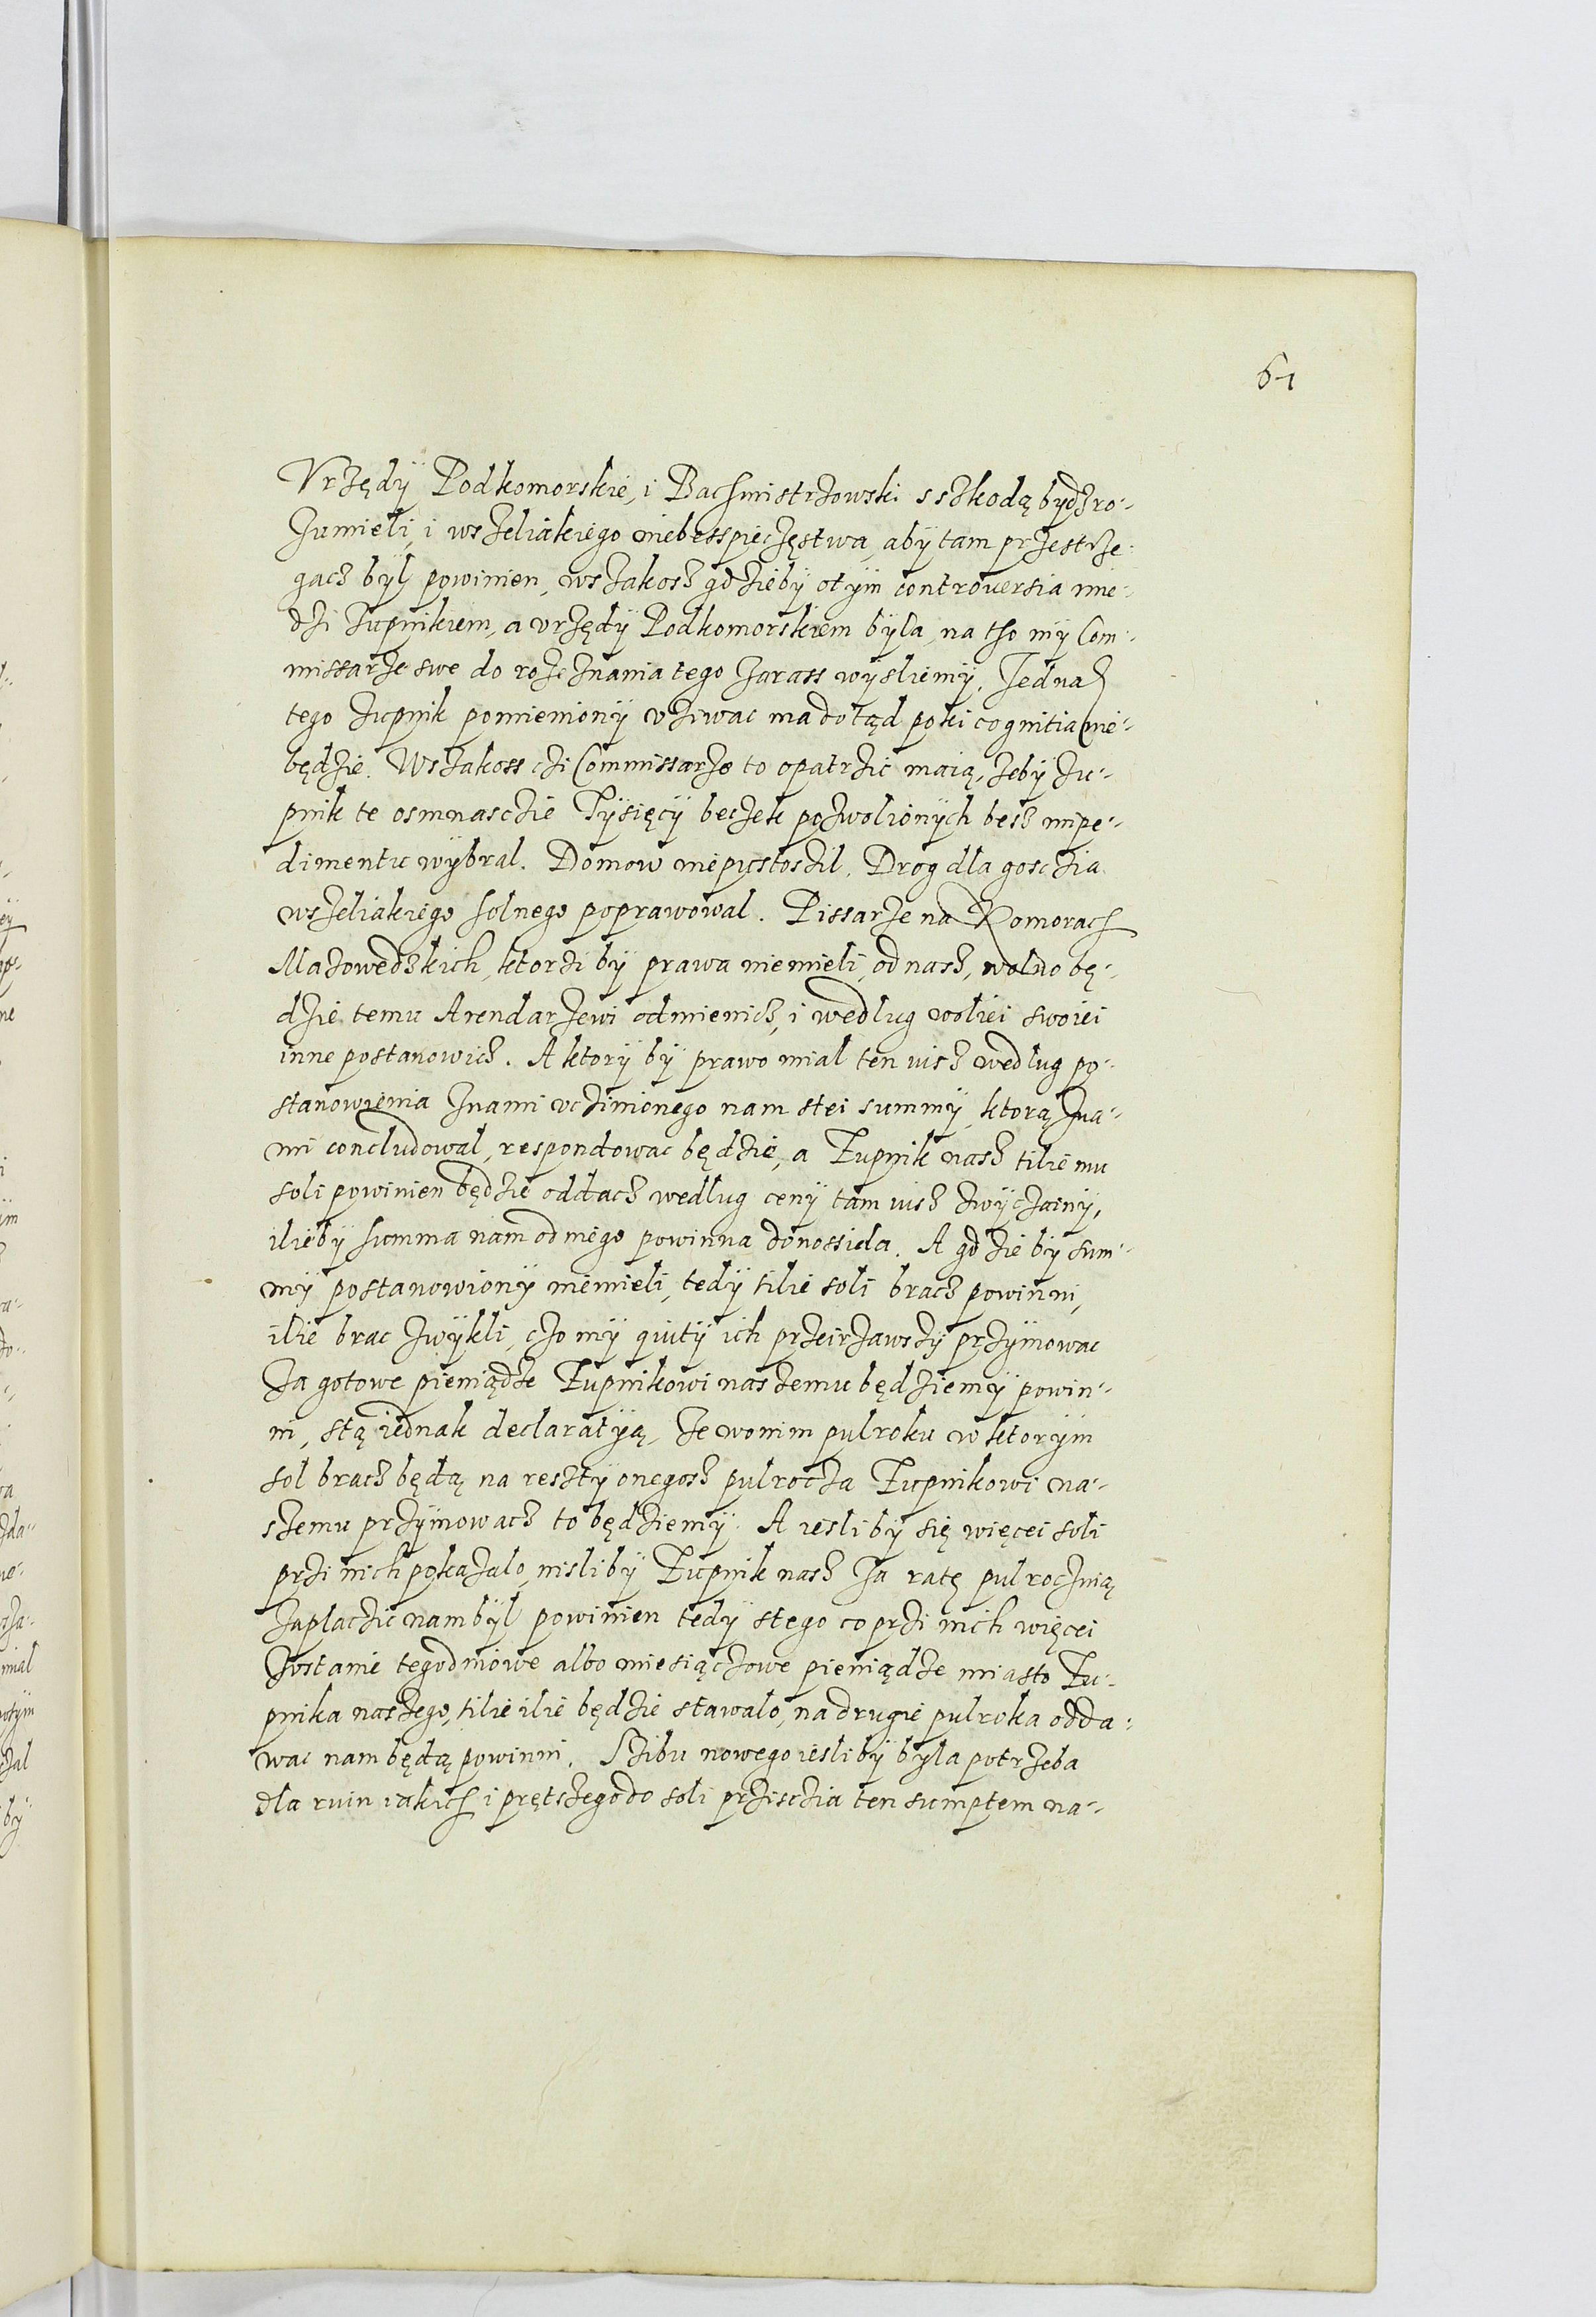 61
Vrzędÿ Podkomorskie, i Bachmistrzowski s szkodą bydz ro-
zumieli, i wszeliakiego niebesspieczęstwa, abÿ tam przestrze-
gacz bÿl powinien, wszakosz gdziebÿ otÿm controuersia mie-
dzi zupnikiem, a vrzędÿ Podkomorskiem bÿla, na tho mÿ Com-
missarze swe do rozeznania tego zarass wÿsliemÿ, Jednak
tego zupnik pomienionÿ vziwac ma dotąd poki cognitia nie-
będzie. Wszakoss czi Commissarze to opatrzic maią, zebÿ zu-
pnik te osmnasczie Tÿsięcÿ beczek pozwolionÿch besz impe-
dimentu wÿbral. Domow niepustoszil, Drog dla gosczia
wszeliakiego solnego poprawowal. Pissarze na Komorach
Mazowedzkich, ktorzi bÿ prawa niemieli, od nasz, wolno bę-
dzie temu Arendarzewi odmienicz, i wedlug woliei swoiei
inne postanowicz. A ktorÿ bÿ prawo mial ten iusz wedlug po-
stanowienia znami vczinionego nam stei summÿ, ktorą zna-
mi concludowal, respondowac będzie, a Zupnik nasz tilie mu
soli powinien będzie oddacz wedlug cenÿ tam iusz zwÿczainÿ,
iliebÿ summa nam od niego powinna donossiela. A gdzie bÿ sum-
mÿ postanowionÿ niemieli, tedÿ tilie soli bracz powinni,
ilie brac zwÿkli, czo mÿ quitÿ ich przeirzawszÿ przÿmowac
za gotowe pieniądze Zupnikowi naszemu będziemÿ powin-
ni, stą iednak declaratÿą, ze wonim pulroku w ktorÿm
sol bracz będą na resztÿ onegosz pulrocza Zupnikowi na-
szemu przÿmowacz to będziemÿ. A iesli bÿ się więcei soli
przi nich pokazalo, nisli bÿ Zupnik nasz za ratę pulrocznią
zaplaczic nam bÿl powinien tedÿ stego co przi nich więcei
zostanie tegodniowe albo miesiączowe pieniądze miasto Zu-
pnika naszego, tilie ilie będzie stawalo, na drugie pulroka odda-
wac nam będą powinni. Szibu nowego iesli bÿ bÿla potrzeba
dla ruin iakich i prętszego do soli prziszczia ten sumptem na-